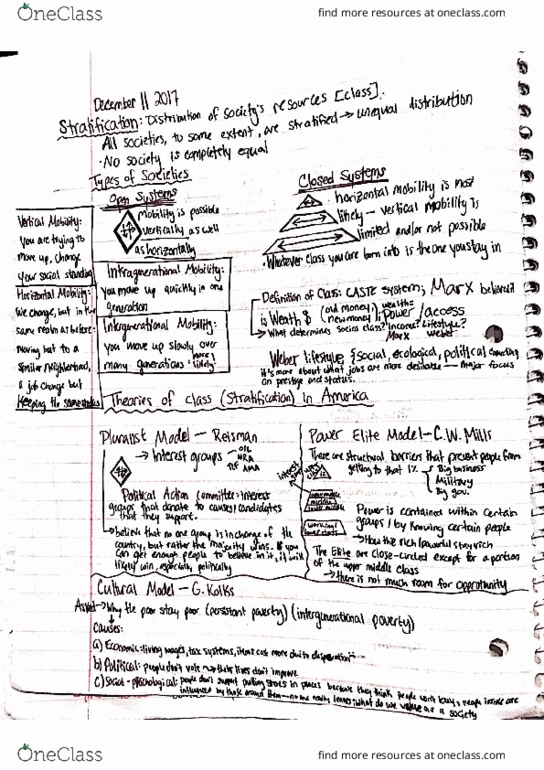 OneClass
find more resources at oneclass.com
December 11 2017
Stratification: Distribution of society's resources [class].
All societies, to some extent, are stratified → unequal distribution
· No society is completely equal
Types of Societies
Open Systems
mobility is possible
vertically as well
as horizontally
Closed Systems
horizontal mobility is most
likely – vertical mobility is
limited and/or not possible
· Whatever class you are born into is the one you stay in
Vertical Mobility:
You are trying to
move up, change
your social standing
Horizontal Mobility:
We change, but in the
same realm as before.
Moving but to a
similar neighborhood,
a job change but
keeping the same status
Intragenerational Mobility:
You move up quickly in one
generation
Intergenerational Mobility:
you move up slowly over
many generations more likely
Definition of Class: CASTE systems, Marx believed
is Wealth $ (old money) (new money) is wealth = Power/access
→ What determines social class? Income? Lifestyle?
Marx Weber
Weber lifestyle {social, ecological, political
it's more about what jobs are more desirable — major focus
on prestige and status.
Theories of class (Stratification) In America
Pluralist Model – Reisman
→ Interest groups – OIL
NRA
AMA
Political Action Committee: interest
groups that donate to causes/candidates
that they support.
→ believe that no one group is in charge of the
country, but rather the majority wins. If you
can get enough people to believe in it, it will
likely win, especially politically
Power Elite Model – C.W. Mills
There are structural barriers that prevent people from
getting to that 1%. Big business
Military
Big gov.
Power is contained within certain
groups / by knowing certain people
→ How the rich/powerful stay rich
The Elite are close-circled except for a portion
of the upper middle class
→ there is not much room for opportunity
Cultural Model – G. Kolks
Asked → Why the poor stay poor (persistant poverty) (intergenerational poverty)
Causes:
a) Economic: living wages, tax systems, items cost more due to desperation
b) Political: people don't vote → their lives don't improve
c) Social - psychological: people don't support putting stores in places because they think people won't buy, people inside are
influenced by those around them – no one really leaves; what do we value as a society
OneClass
find more resources at oneclass.com